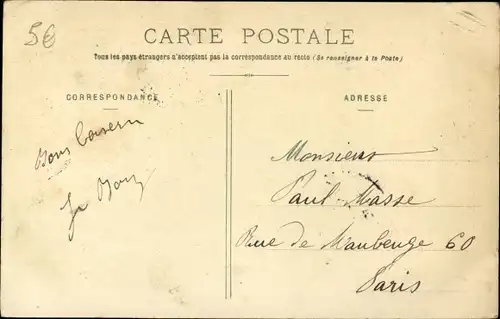 5€
CARTE POSTALE
Tous les pays étrangers n'acceptent pas la correspondance au recto (Se renseigner à la Poste)
CORRESPONDANCE
ADRESSE
Bons
Monsieur
Paul Masse
Rue de Maubeuge 60
Paris